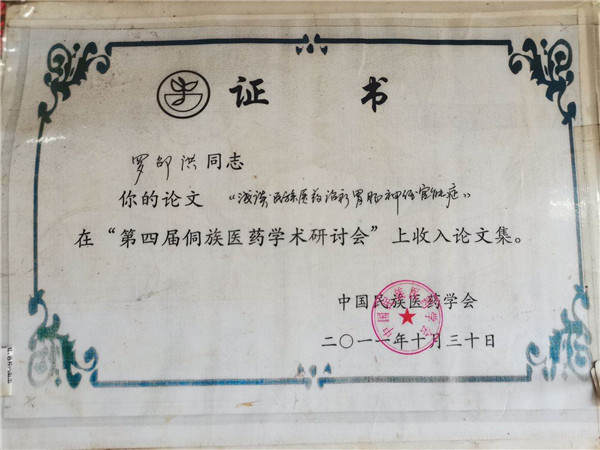 证 书
罗邵洪同志
你的论文 “浅谈民族医药治疗胃肠神经官能症”
在“第四届侗族医药学术研讨会”上收入论文集。
中国民族医药学会
二〇一一年十月三十日